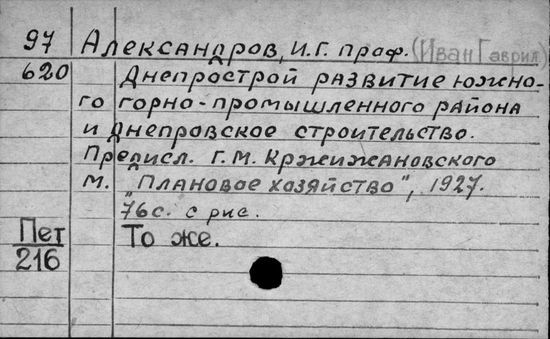 97 Александров, И.Г. проф. (Иван Гаврил)
620 Днепрострой развитие южно-
го горно-промышленного района
и Днепровское строительство.
Предисл. Г.М. Кржижановского
М. "Плановое хозяйство", 1927.
76с. с рис.
Пет То же.
216